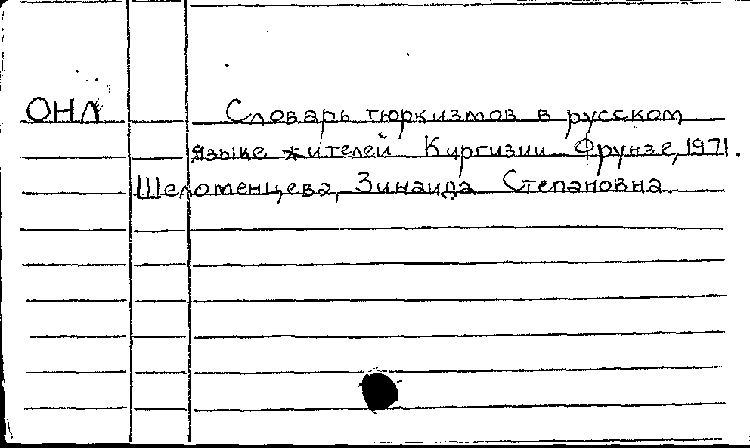 ОНЛ Словарь тюркизмов в русском
языке жителей Киргизии. Фрунзе, 1971.
Шеломенцева, Зинаида Степановна.